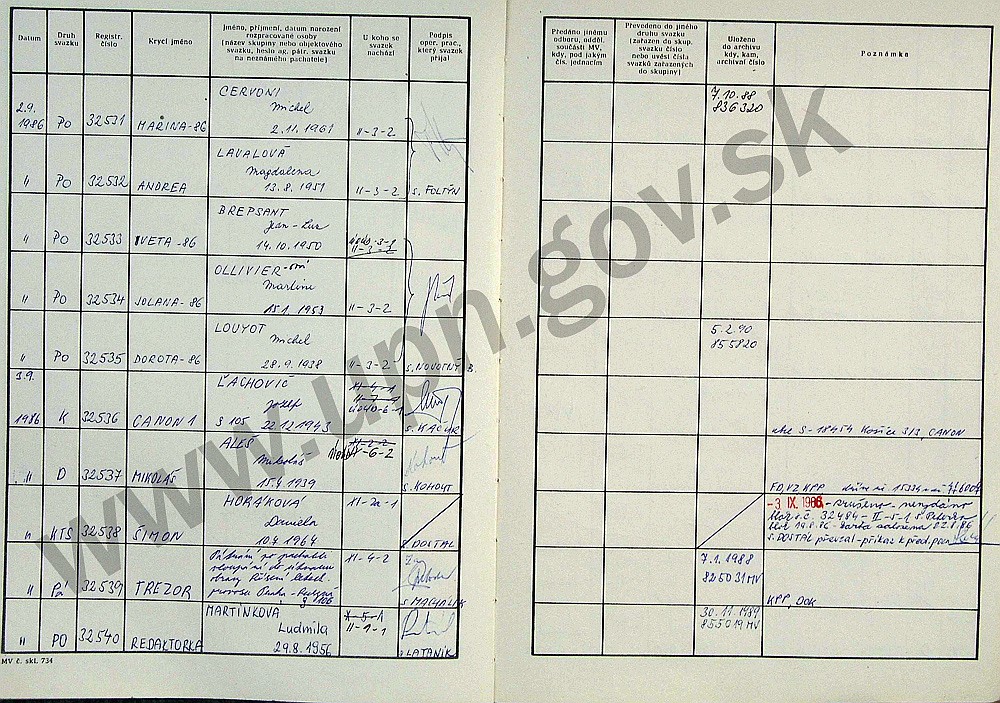 Datum
Druh svazku
Registr. číslo
Krycí jméno
Jméno, příjmení, datum narození
rozpracované osoby
(název skupiny nebo objektového
svazku, heslo ag. pátr. svazku
na neznámého pachatele)
U koho se svazek nachází
Podpis oper. prac., který svazek přijal
Předáno jinému odboru, odděl. součásti MV, kdy, pod jakým čís. jednacím
Převedeno do jiného druhu svazku (zařazen do skup. svazku číslo nebo uvést čísla svazků zařazených do skupiny)
Uloženo do archivu kdy, kam, archivní číslo
Poznámka
2.9.
1986 PO 32531 MAŘINA-86
CERVONI
Michel
2.11.1961
II-3-2
7.10.88
836320
" PO 32532 ANDREA
LAVALOVÁ
Magdalena
13.8.1951
II-3-2
s. FOLTÝN
" PO 32533 IVETA-86
BREPSANT
Jean-Luc
14.10.1950
II-3-2
" PO 32534 JOLANA-86
OLLIVIER-ová
Martine
15.1.1953
II-3-2
" PO 32535 DOROTA-86
LOUYOT
Michel
28.9.1938
II-3-2
s. NOVOTNÝ B.
5.2.90
855820
3.9.
1986 K 32536 CANON 1
ĽACHOVIČ
Jozef
S 105 22.12.1943
XI-4-1
ÚO40-6-1
s. KAČUR
S-18454 Košice S13, CANON
" D 32537 MIKOLÁŠ
ALEŠ
Mikoláš
15.4.1939
XI-2-2
-6-2
s. KOHOUT
FO, VZ KPP
" KTS 32538 ŠIMON
HORÁKOVÁ
Daniela
10.4.1964
XI-2a-1
s. DOSTAL
-3. IX. 1986 - zrušeno - nevydáno
32484 - II-5-1
s. DOSTAL převzal - příkaz k před. pen.
" Pá 32539 TREZOR
Pátrání po pachateli
vloupání do
obrazy
Praha-
S 106
XI-4-2
s. MACHALÍK
7.1.1988
825031 MV
KPP, DOK
" PO 32540 REDAKTORKA
MARTÍNKOVÁ
Ludmila
29.8.1956
X-5-1
II-1-1
s. LATANÍK
30.11.1989
855019 MV
MV č. skl. 734
www.upn.gov.sk